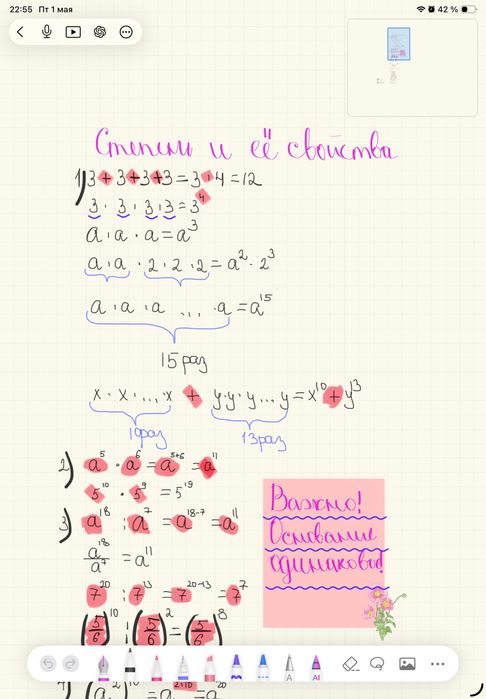 22:55 Пт 1 мая 42 %
Степень и её свойства
1) 3 + 3 + 3 + 3 = 3 · 4 = 12
3 · 3 · 3 · 3 = 3⁴
a · a · a = a³
a · a · 2 · 2 · 2 = a² · 2³
a · a · a ... · a = a¹⁵
15 раз
x · x · ... · x + y · y · y ... y = x¹⁰ + y¹³
10 раз 13 раз
2) a⁵ · a⁶ = a⁵⁺⁶ = a¹¹
5¹⁰ · 5⁹ = 5¹⁹
3) a¹⁸ : a⁷ = a¹⁸⁻⁷ = a¹¹
a¹⁸/a⁷ = a¹¹
7²⁰ : 7¹³ = 7²⁰⁻¹³ = 7⁷
(5/6)¹⁰ : (5/6)² = (5/6)⁸
Важно!
Основание
одинаково!